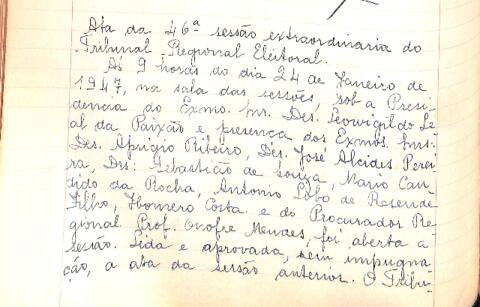 Ata da 46ª sessão extraordinaria do
Tribunal Regional Eleitoral.
Ás 9 horas do dia 24 de Janeiro de
1947, na sala das sessões, sob a Presi
dencia do Exmo. Snr. Des. Leovigildo Le
al da Paixão e presença dos Exmos. Snrs:
Des. Aprigio Ribeiro, Des. José Alcides Perei
ra, Drs: Sebastião de Souza, Mario Can
dido da Rocha, Antonio Lobo de Resende
Filho, Homero Costa e do Procurador Re
gional Prof. Onofre Mendes, foi aberta a
sessão. Lida e aprovada, sem impugna
ção, a ata da sessão anterior. O Tribu